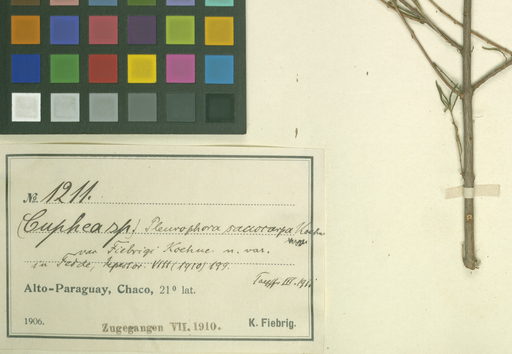 No. 1211.
(Cuphea sp.) Pleurophora saccocarpa Koehne
var. Fiebrigii Koehne n. var.
in Fedde, Repert. VIII (1910) 199.
Alto-Paraguay, Chaco, 21º lat.
1906.
Zugegangen VII. 1910.
K. Fiebrig.